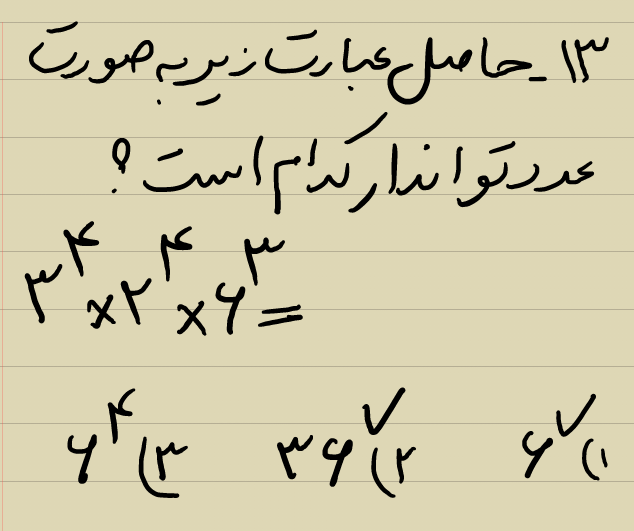 ۱۳- حاصل عبارت زیر به صورت
عدد توان‌دار کدام است؟
۳^۴ × ۲^۴ × ۶^۳ =
۱) ۶^۷ ۲) ۳۶^۷ ۳) ۶^۴